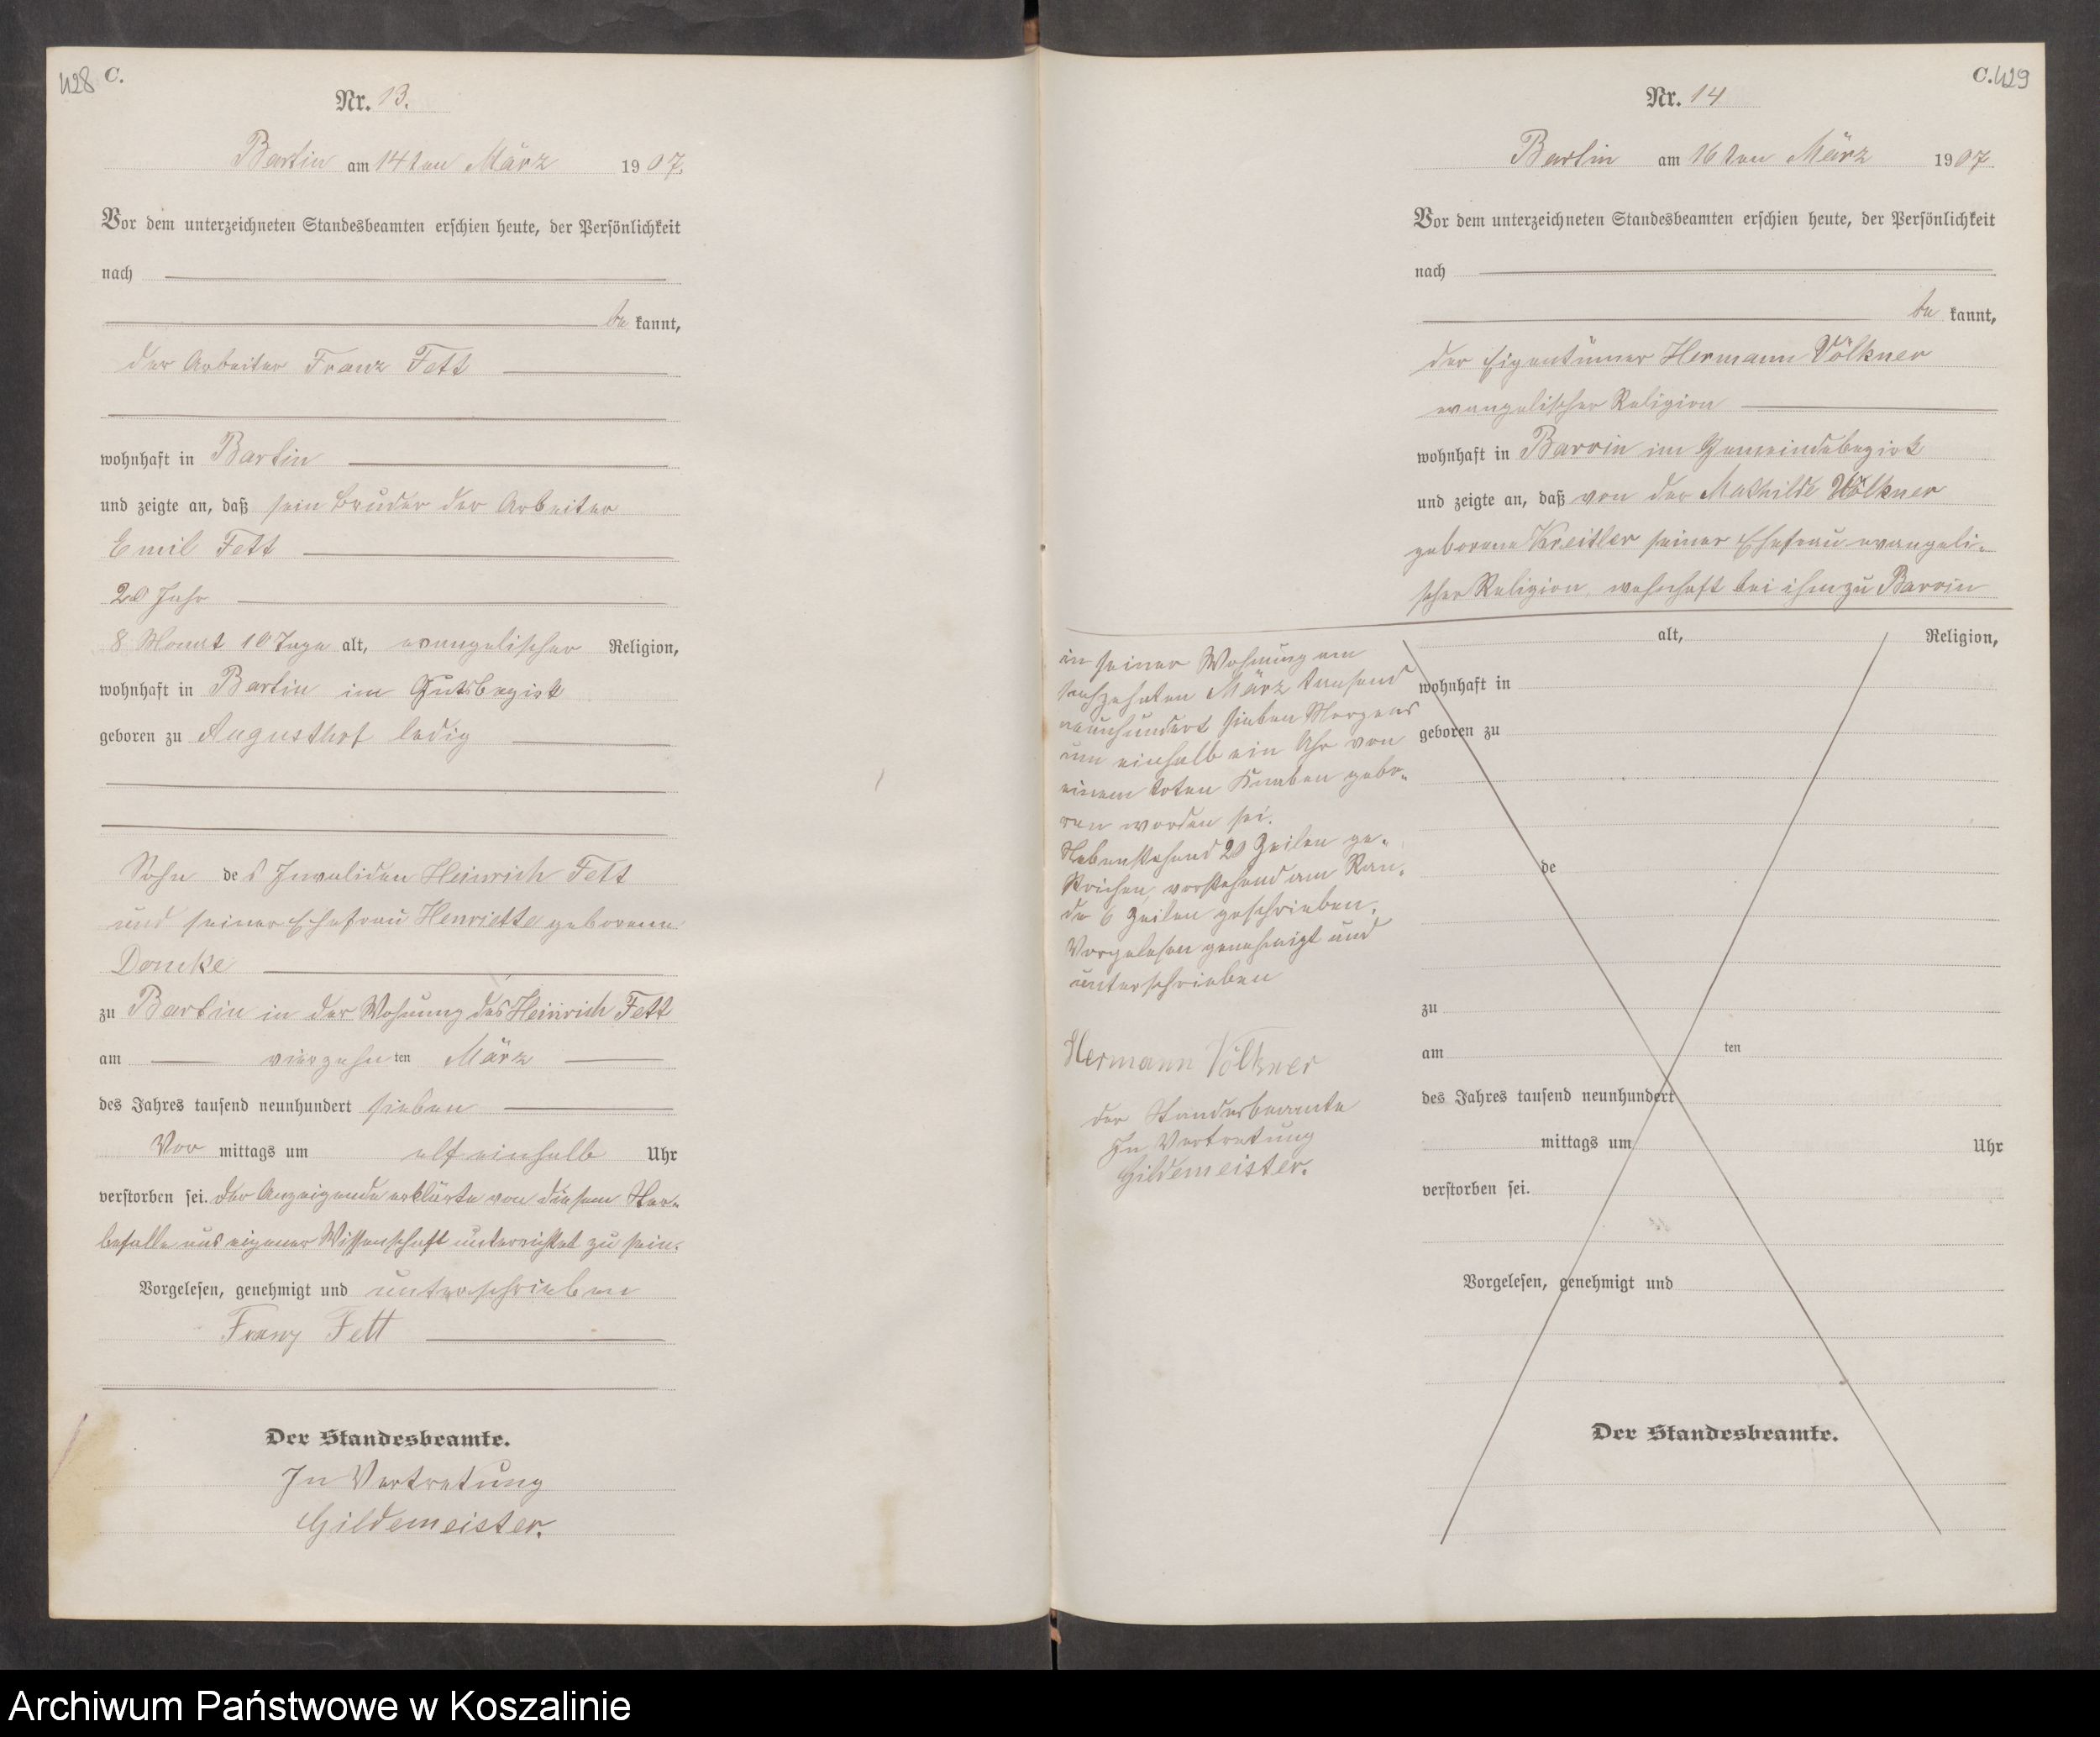 428 C.
Nr. 13.
Bartin am 14ten März 1907.
Vor dem unterzeichneten Standesbeamten erschien heute, der Persönlichkeit
nach
be kannt,
der Arbeiter Franz Fett
wohnhaft in Bartin
und zeigte an, daß sein Bruder der Arbeiter
Emil Fett
Jahr
8 Monat 10 Tage alt, evangelischer Religion,
wohnhaft in Bartin im Gutsbezirk
geboren zu Augusthof ledig
Sohn des Invaliden Heinrich Fett
und seiner Ehefrau Henriette geborene
Domke
zu Bartin in der Wohnung des Heinrich Fett
am vierzehnten März
des Jahres tausend neunhundert sieben
Vor mittags um elf einhalb Uhr
verstorben sei. Der Anzeigende erklärte von diesem Ster-
befalle aus eigener Wissenschaft unterrichtet zu sein.
Vorgelesen, genehmigt und unterschrieben
Franz Fett
Der Standesbeamte.
In Vertretung
Gildemeister.
C. 429
Nr. 14
Bartin am 16ten März 1907
Vor dem unterzeichneten Standesbeamten erschien heute, der Persönlichkeit
nach
be kannt,
der Eigentümer Hermann Völkner
evangelischer Religion
wohnhaft in Barvin im Gemeindebezirk
und zeigte an, daß von der Mathilde Völkner
geborene Kreitler seiner Ehefrau evangeli-
scher Religion, wohnhaft bei ihm zu Barvin
alt, Religion,
wohnhaft in
geboren zu
de
zu
am ten
des Jahres tausend neunhundert
mittags um Uhr
verstorben sei.
Vorgelesen, genehmigt und
Der Standesbeamte.
in seiner Wohnung am
sechzehnten März tausend
neunhundert sieben Morgens
um einhalb ein Uhr von
einem toten Knaben gebo-
ren worden sei.
Nebenstehend Zeilen ge-
strichen, vorstehend am Ran-
de 6 Zeilen geschrieben.
Vorgelesen genehmigt und
unterschrieben
Hermann Völkner
der Standesbeamte
In Vertretung
Gildemeister.
Archiwum Państwowe w Koszalinie